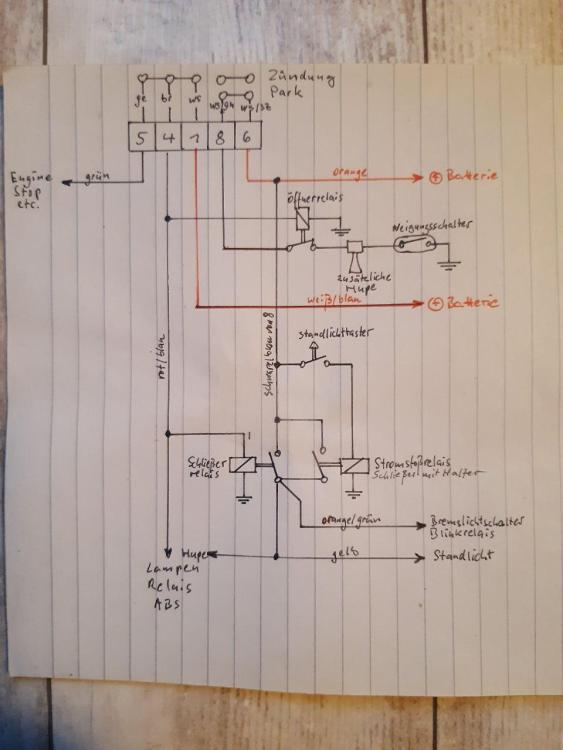 Zündung
Park
ge br ws ws/gn ws/sz
5 4 1 8 6
Engine
Stop
etc.
grün
orange
(+) Batterie
Öffnerrelais
Neigungsschalter
zusätzliche
Hupe
weiß/blau
(+) Batterie
rot/blau
Standlichttaster
Schließer
relais
Stromstoßrelais
Schließer mit Halter
orange/grün
Bremslichtschalter
Blinkrelais
Hupe
gelb
Standlicht
Lampen
Relais
ABS